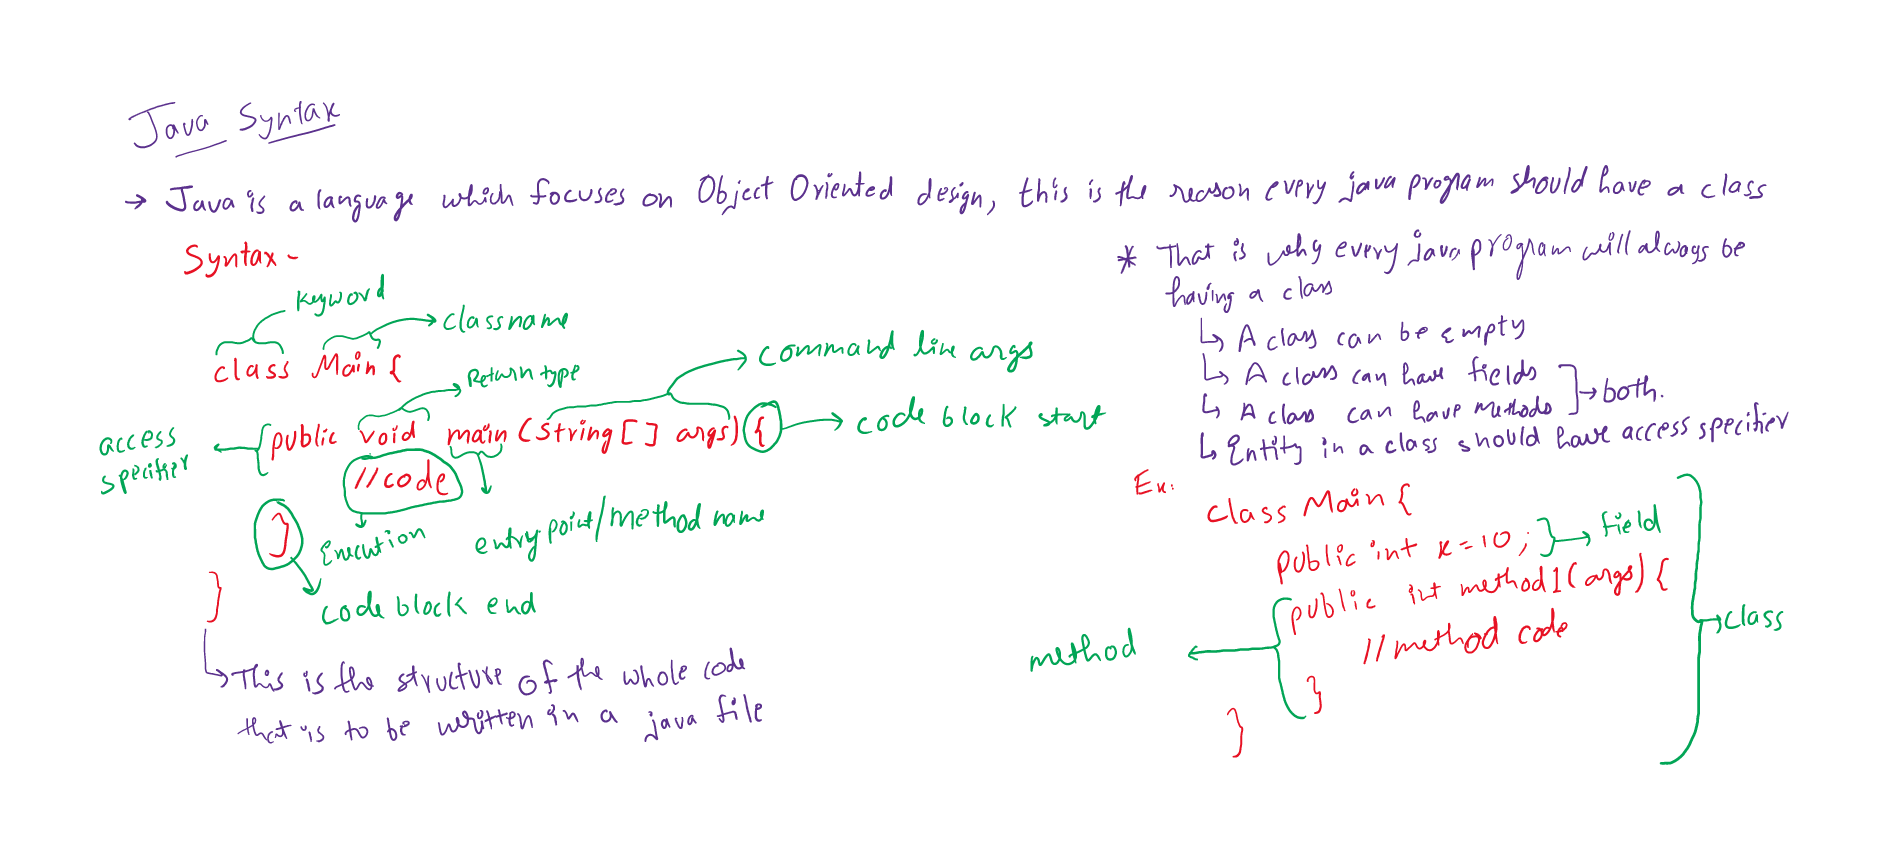 Java Syntax
→ Java is a language which focuses on Object Oriented design, this is the reason every java program should have a class
Syntax -
keyword
classname
class Main {
Return type
command line args
access specifier
public void main (String [] args) {
code block start
//code
}
Execution
entry point/method name
code block end
}
This is the structure of the whole code
that is to be written in a java file
* That is why every java program will always be
having a class
↳ A class can be empty
↳ A class can have fields
↳ A class can have methods
→ both.
↳ Entity in a class should have access specifier
Ex:
class Main {
public int x = 10 ;
→ field
public int method1 (args) {
//method code
method
}
}
→ class